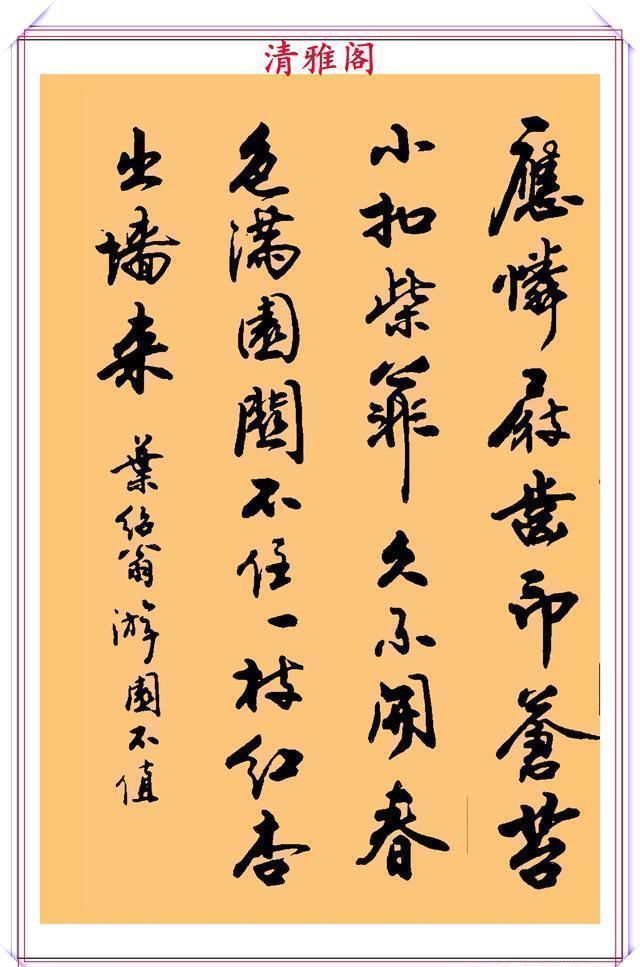 清雅阁
應憐屐齒印蒼苔
小扣柴扉久不開春
色满園關不住一枝红杏
出墙来
葉紹翁游園不值